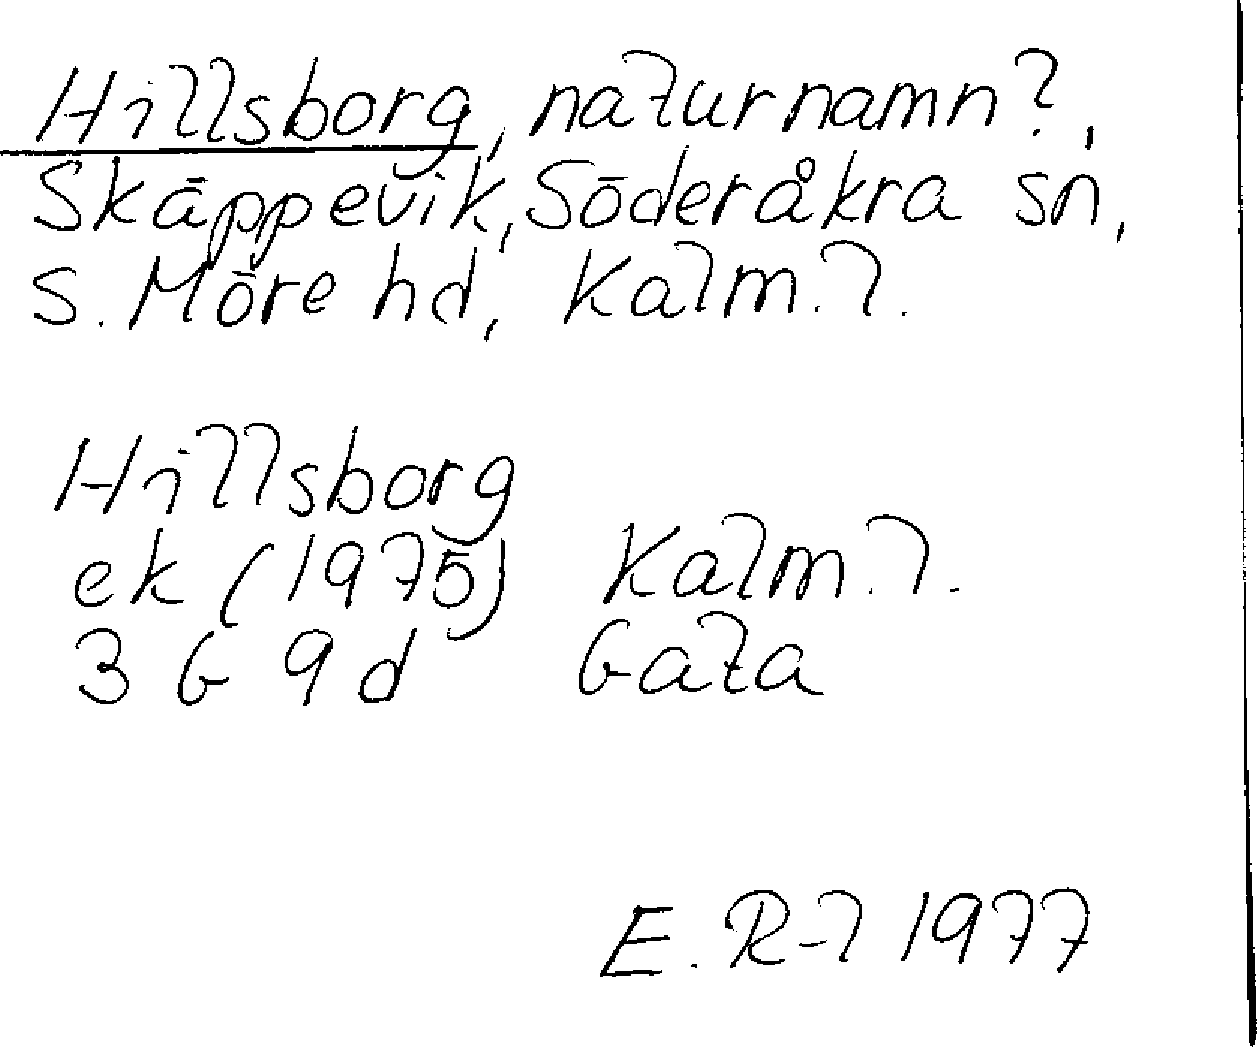 Hillsborg, naturnamn?,
Skäppevik, Söderåkra sn,
S. Möre hd, Kalm. l.
Hillsborg
ek (1975) Kalm. l.
3 G 9 d Gata
E. R-l 1977